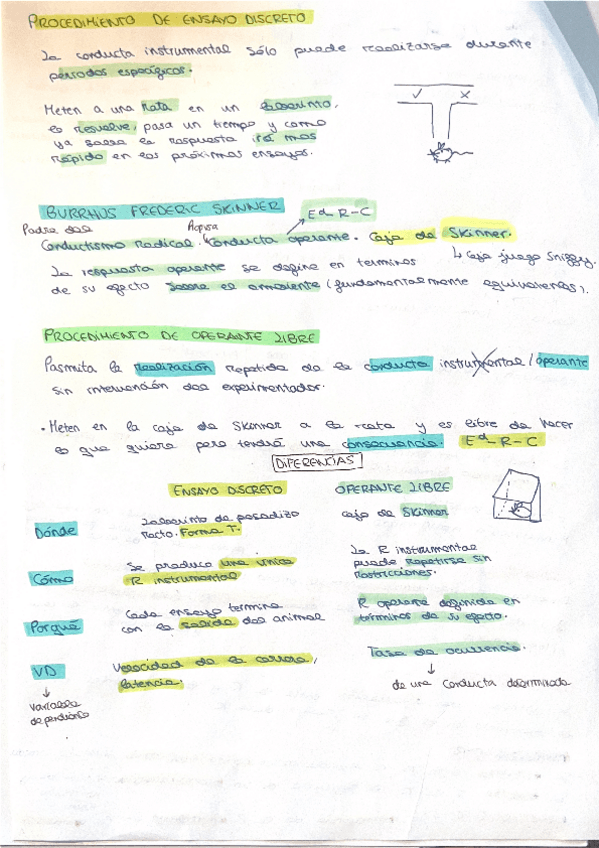 PROCEDIMIENTO DE ENSAYO DISCRETO
La conducta instrumental sólo puede realizarse durante
periodos específicos.
Meten a una rata en un laberinto,
lo resuelve, pasa un tiempo y como
ya sabe la respuesta irá mas
rápido en los próximos ensayos.
✓ X
BURRHUS FREDERIC SKINNER
Ed-R-C
Padre del
Conductismo Radical. Conducta operante. Caja de Skinner.
La respuesta operante se define en terminos
↳ Caja juego Sniffy.
de su efecto sobre el ambiente (fundamentalmente equivalentes).
PROCEDIMIENTO DE OPERANTE LIBRE
Permite la realización repetida de la conducta instrumental / operante
sin intervención del experimentador.
• Meten en la caja de Skinner a la rata y es libre de hacer
lo que quiera pero tendrá una consecuencia. Ed-R-C
DIFERENCIAS
ENSAYO DISCRETO
OPERANTE LIBRE
Dónde
Laberinto de pasadizo
recto. Forma T.
Caja de Skinner
Cómo
Se produce una única
R instrumental
La R instrumental
puede repetirse sin
restricciones.
Porqué
Cada ensayo termina
con la salida del animal
R operante definida en
términos de su efecto.
VD
Velocidad de la carrera,
latencia.
Tasa de ocurrencia.
↓
variable
dependiente
↓
de una conducta determinada